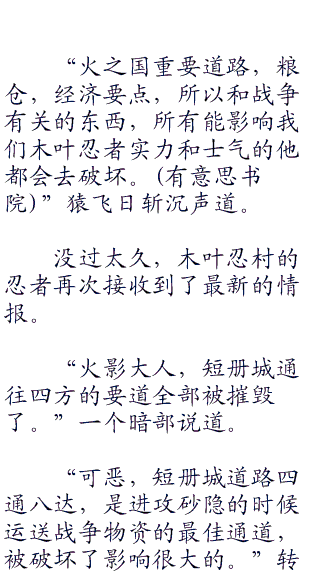 “火之国重要道路，粮
仓，经济要点，所以和战争
有关的东西，所有能影响我
们木叶忍者实力和士气的他
都会去破坏。(有意思书
院)”猿飞日斩沉声道。
没过太久，木叶忍村的
忍者再次接收到了最新的情
报。
“火影大人，短册城通
往四方的要道全部被摧毁
了。”一个暗部说道。
“可恶，短册城道路四
通八达，是进攻砂隐的时候
运送战争物资的最佳通道，
被破坏了影响很大的。”转